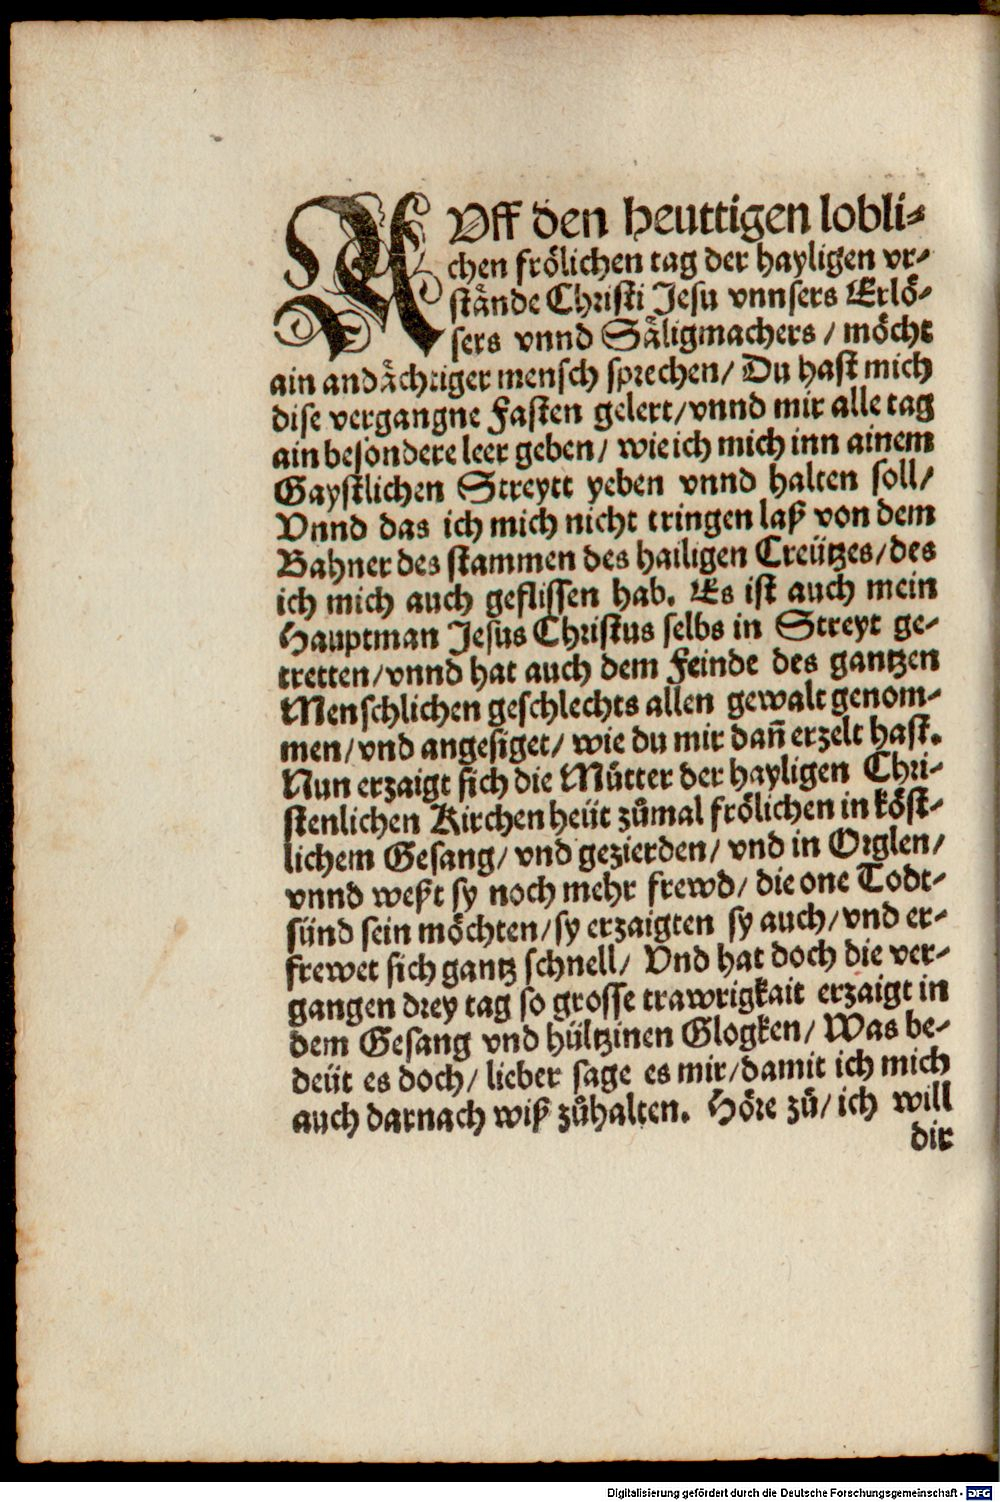 AVff den heuttigen lobli-
chen frölichen tag der hayligen vr-
stände Christi Jesu vnnsers Erlö-
sers vnnd Säligmachers / möcht
ain andächtiger mensch sprechen/ Du hast mich
dise vergangne Fasten gelert/vnnd mir alle tag
ain besondere leer geben/ wie ich mich inn ainem
Gaystlichen Streytt yeben vnnd halten soll/
Vnnd das ich mich nicht tringen laß von dem
Bahner des stammen des hailigen Creützes/des
ich mich auch geflissen hab. Es ist auch mein
Hauptman Jesus Christus selbs in Streyt ge-
tretten/vnnd hat auch dem Feinde des gantzen
Menschlichen geschlechts allen gewalt genom-
men/vnd angesiget/ wie du mir dañ erzelt hast.
Nun erzaigt sich die Můtter der hayligen Chri-
stenlichen Kirchen heüt zůmal frölichen in köst-
lichem Gesang/ vnd gezierden/ vnd in Orglen/
vnnd weßt sy noch mehr frewd/ die one Todt-
sünd sein möchten/sy erzaigten sy auch/vnd er-
frewet sich gantz schnell/ Vnd hat doch die ver-
gangen drey tag so grosse trawrigkait erzaigt in
dem Gesang vnd hültzinen Glogken/ Was be-
deüt es doch/ lieber sage es mir/damit ich mich
auch darnach wiß zůhalten. Höre zů/ ich will
dir
Digitalisierung gefördert durch die Deutsche Forschungsgemeinschaft - DFG